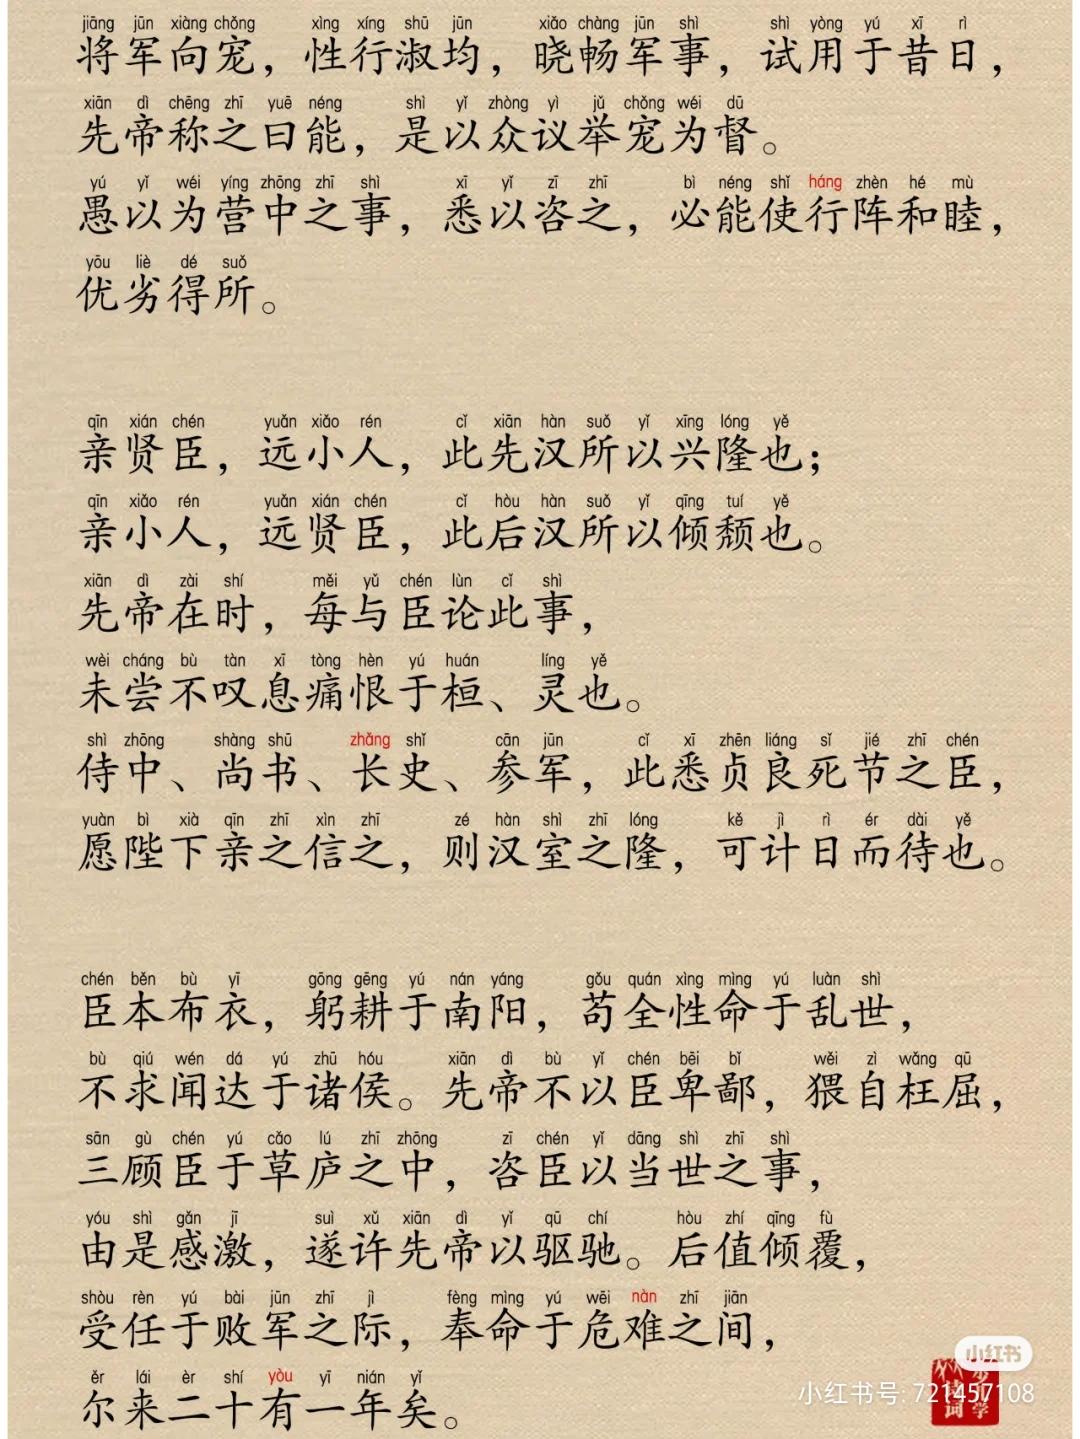 jiāng jūn xiàng chǒng xìng xíng shū jūn xiǎo chàng jūn shì shì yòng yú xī rì
将军向宠，性行淑均，晓畅军事，试用于昔日，
xiān dì chēng zhī yuē néng shì yǐ zhòng yì jǔ chǒng wéi dū
先帝称之曰能，是以众议举宠为督。
yú yǐ wéi yíng zhōng zhī shì xī yǐ zī zhī bì néng shǐ háng zhèn hé mù
愚以为营中之事，悉以咨之，必能使行阵和睦，
yōu liè dé suǒ
优劣得所。
qīn xián chén yuǎn xiǎo rén cǐ xiān hàn suǒ yǐ xīng lóng yě
亲贤臣，远小人，此先汉所以兴隆也；
qīn xiǎo rén yuǎn xián chén cǐ hòu hàn suǒ yǐ qīng tuí yě
亲小人，远贤臣，此后汉所以倾颓也。
xiān dì zài shí měi yǔ chén lùn cǐ shì
先帝在时，每与臣论此事，
wèi cháng bù tàn xī tòng hèn yú huán líng yě
未尝不叹息痛恨于桓、灵也。
shì zhōng shàng shū zhǎng shǐ cān jūn cǐ xī zhēn liáng sǐ jié zhī chén
侍中、尚书、长史、参军，此悉贞良死节之臣，
yuàn bì xià qīn zhī xìn zhī zé hàn shì zhī lóng kě jì rì ér dài yě
愿陛下亲之信之，则汉室之隆，可计日而待也。
chén běn bù yī gōng gēng yú nán yáng gǒu quán xìng mìng yú luàn shì
臣本布衣，躬耕于南阳，苟全性命于乱世，
bù qiú wén dá yú zhū hóu xiān dì bù yǐ chén bēi bǐ wěi zì wǎng qū
不求闻达于诸侯。先帝不以臣卑鄙，猥自枉屈，
sān gù chén yú cǎo lú zhī zhōng zī chén yǐ dāng shì zhī shì
三顾臣于草庐之中，咨臣以当世之事，
yóu shì gǎn jī suì xǔ xiān dì yǐ qū chí hòu zhí qīng fù
由是感激，遂许先帝以驱驰。后值倾覆，
shòu rèn yú bài jūn zhī jì fèng mìng yú wēi nàn zhī jiān
受任于败军之际，奉命于危难之间，
ěr lái èr shí yòu yī nián yǐ
尔来二十有一年矣。
小红书
小红书号: 721457108